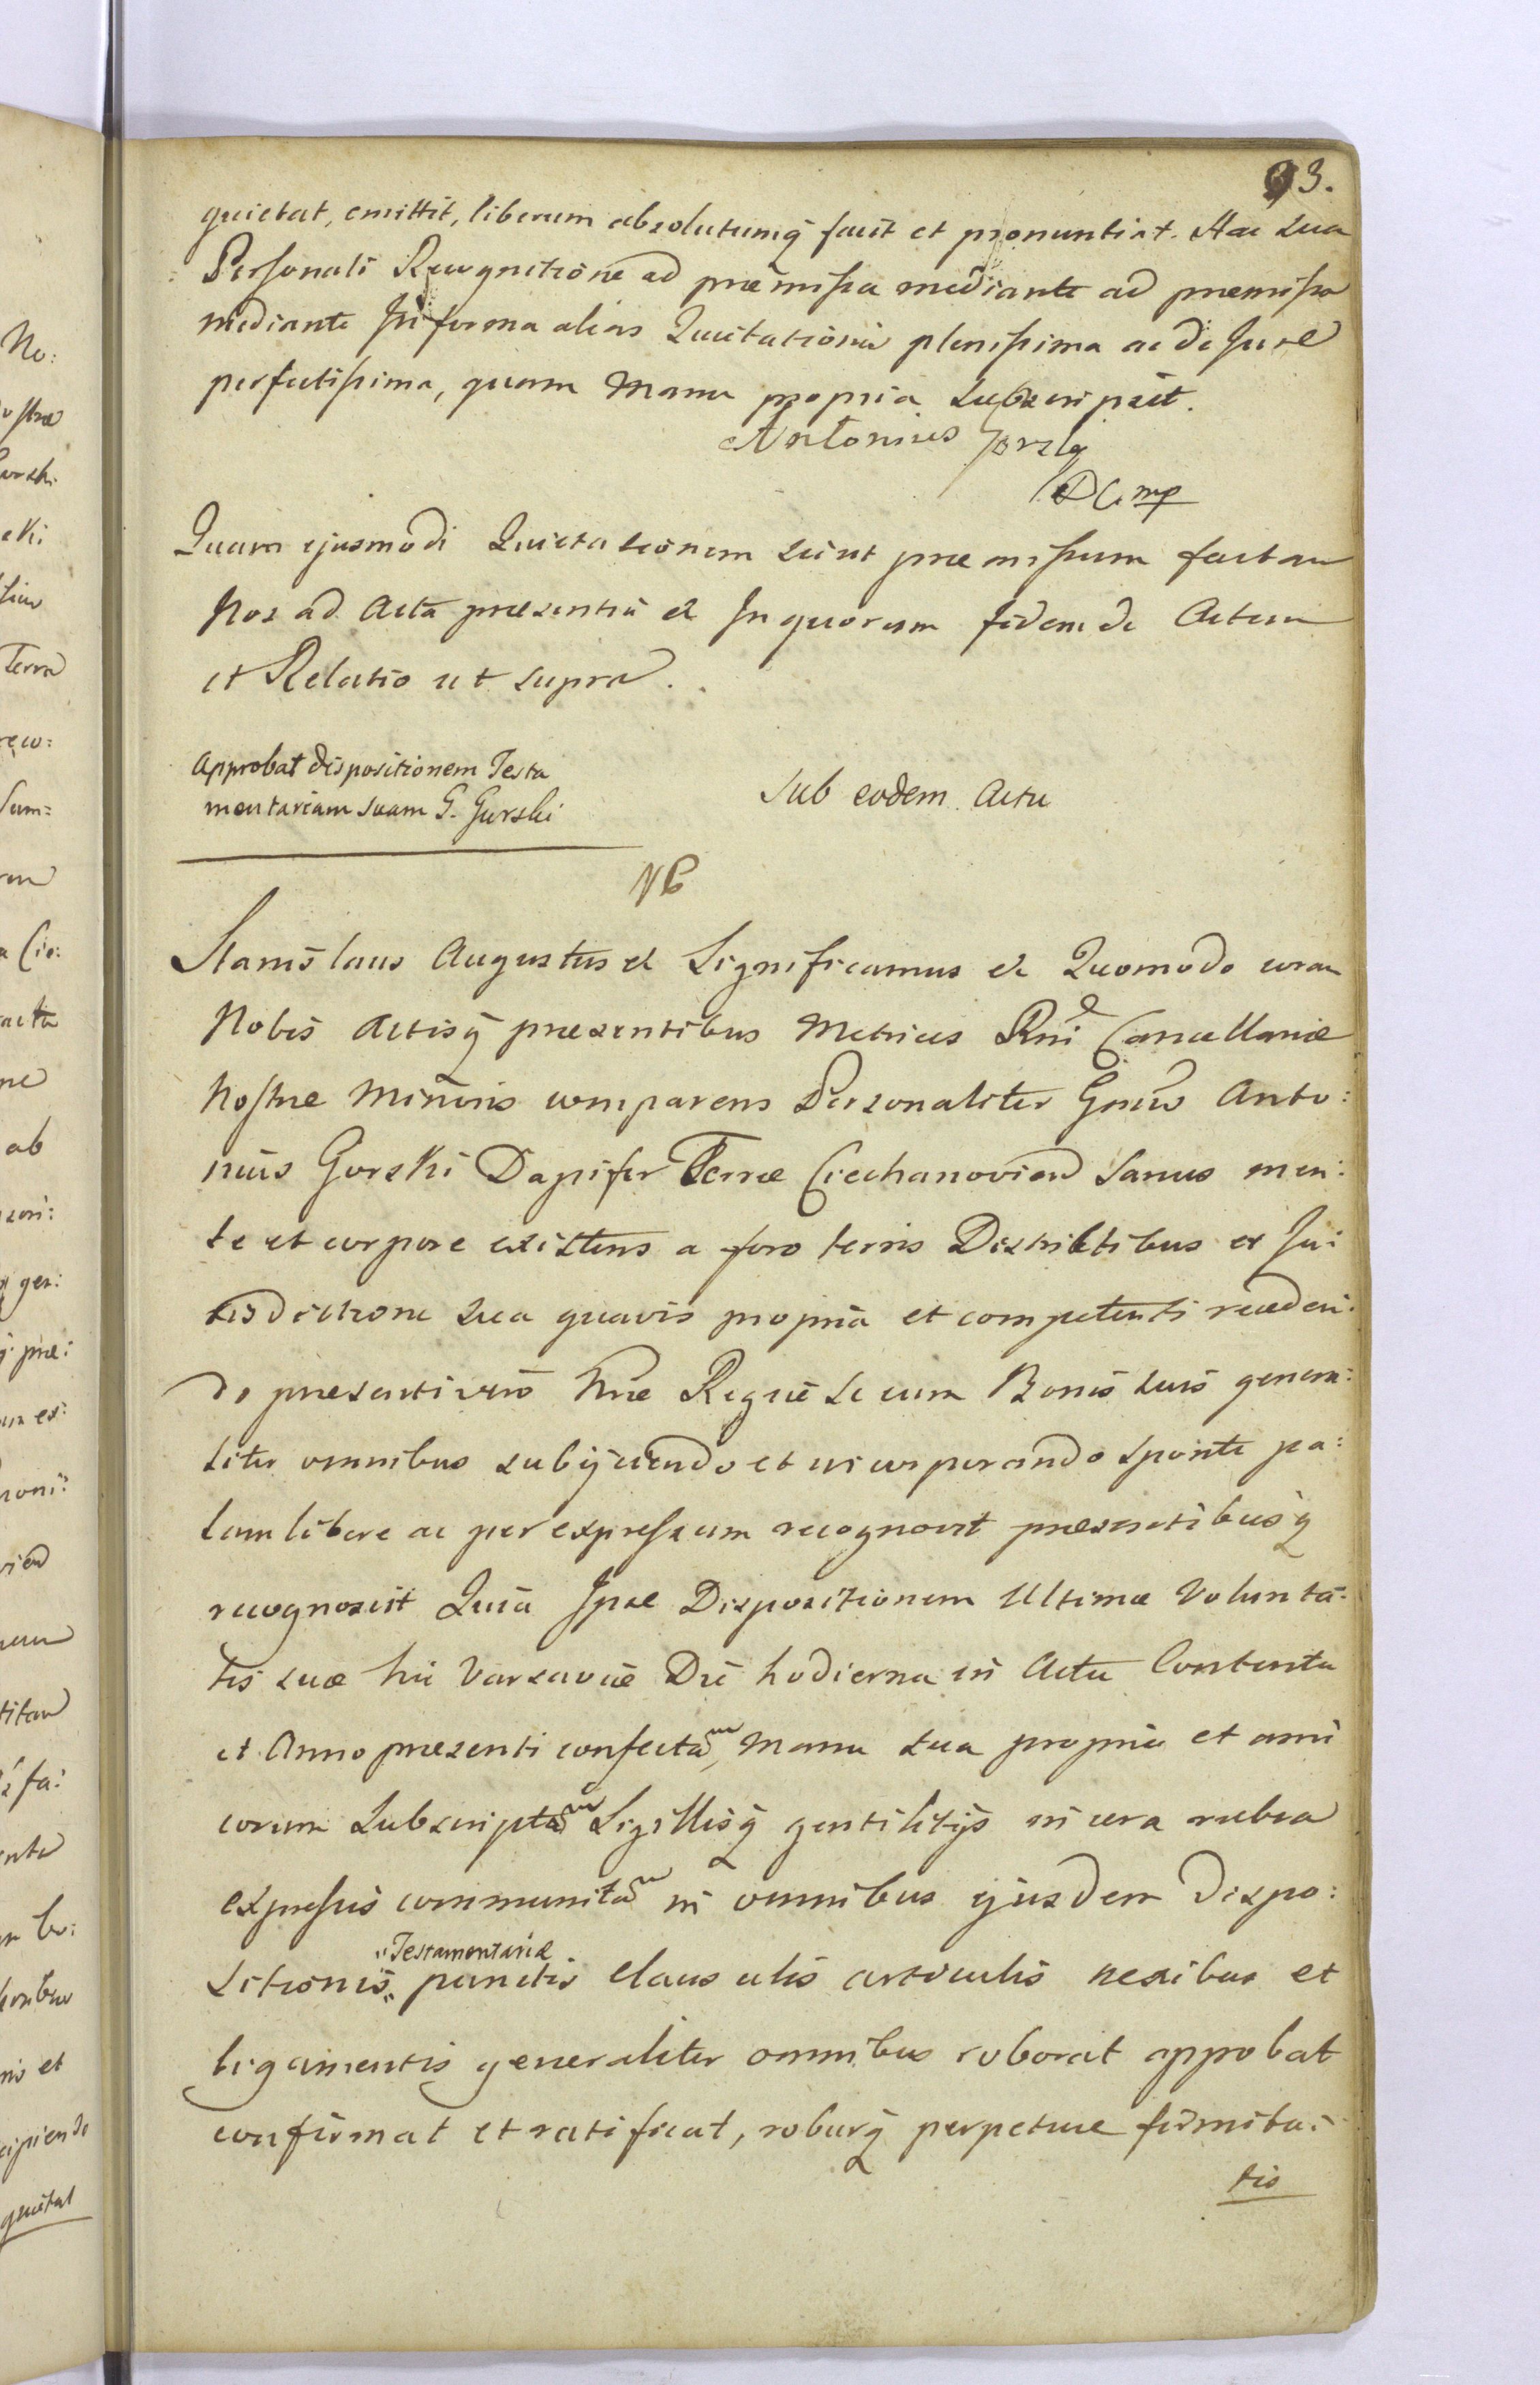 93.
quietat, emittit, liberum absolutumq facit et pronuntiat. Hac sua
Personali Recognitione ad præmissa mediante ad præmissa
mediante In forma alias Quietationis plenissima ac de Jure
perfectissima, quam Manu propria subscripsit.
Antonius Gorski
mp
Quam ejusmodi Quietationem sicut præmissum factam
Nos ad Acta præsentia et In quorum fidem de Actum
et Relatio ut supra.
Approbat dispositionem Testa
mentariam suam G. Gurski
Sub eodem Actu
NB
Stanislaus Augustus et Significamus et Quomodo coram
Nobis Actisq præsentibus Metrices Rni Cancellariæ
Nostræ Minoris comparens Personaliter Gnsus Anto:
nius Gorski Dapifer Terræ Ciechanovien Sanus men:
te et corpore existens a foro terris Districtibus et Ju:
risdictione sua quavis propria et competenti receden:
do præsenti vero hñe Regiæ se cum Bonis suis genera:
liter omnibus subijciendo et incorporando sponte pa:
lam libere ac per expressum recognovit præsentibusq
recognoscit Quia Ipse Dispositionem Ultimæ Volunta:
tis suæ hic Varsaviæ Die hodierna in Actu Contenta
et Anno præsenti confectam, Manu sua propria et ami
corum Subscriptam Sigillisq gentilitijs in cera rubra
expressis communitam in omnibus ejusdem Dispo:
"Testamentariæ
sitionis" punctis clausulis articulis nexibus et
ligamentis generaliter omnibus roborat approbat
confirmat et ratificat, roburq perpetuæ firmita:
tis
No:
ostræ
Terra
Sum=
acta
ab
gen:
præ:
fa:
et
quietat